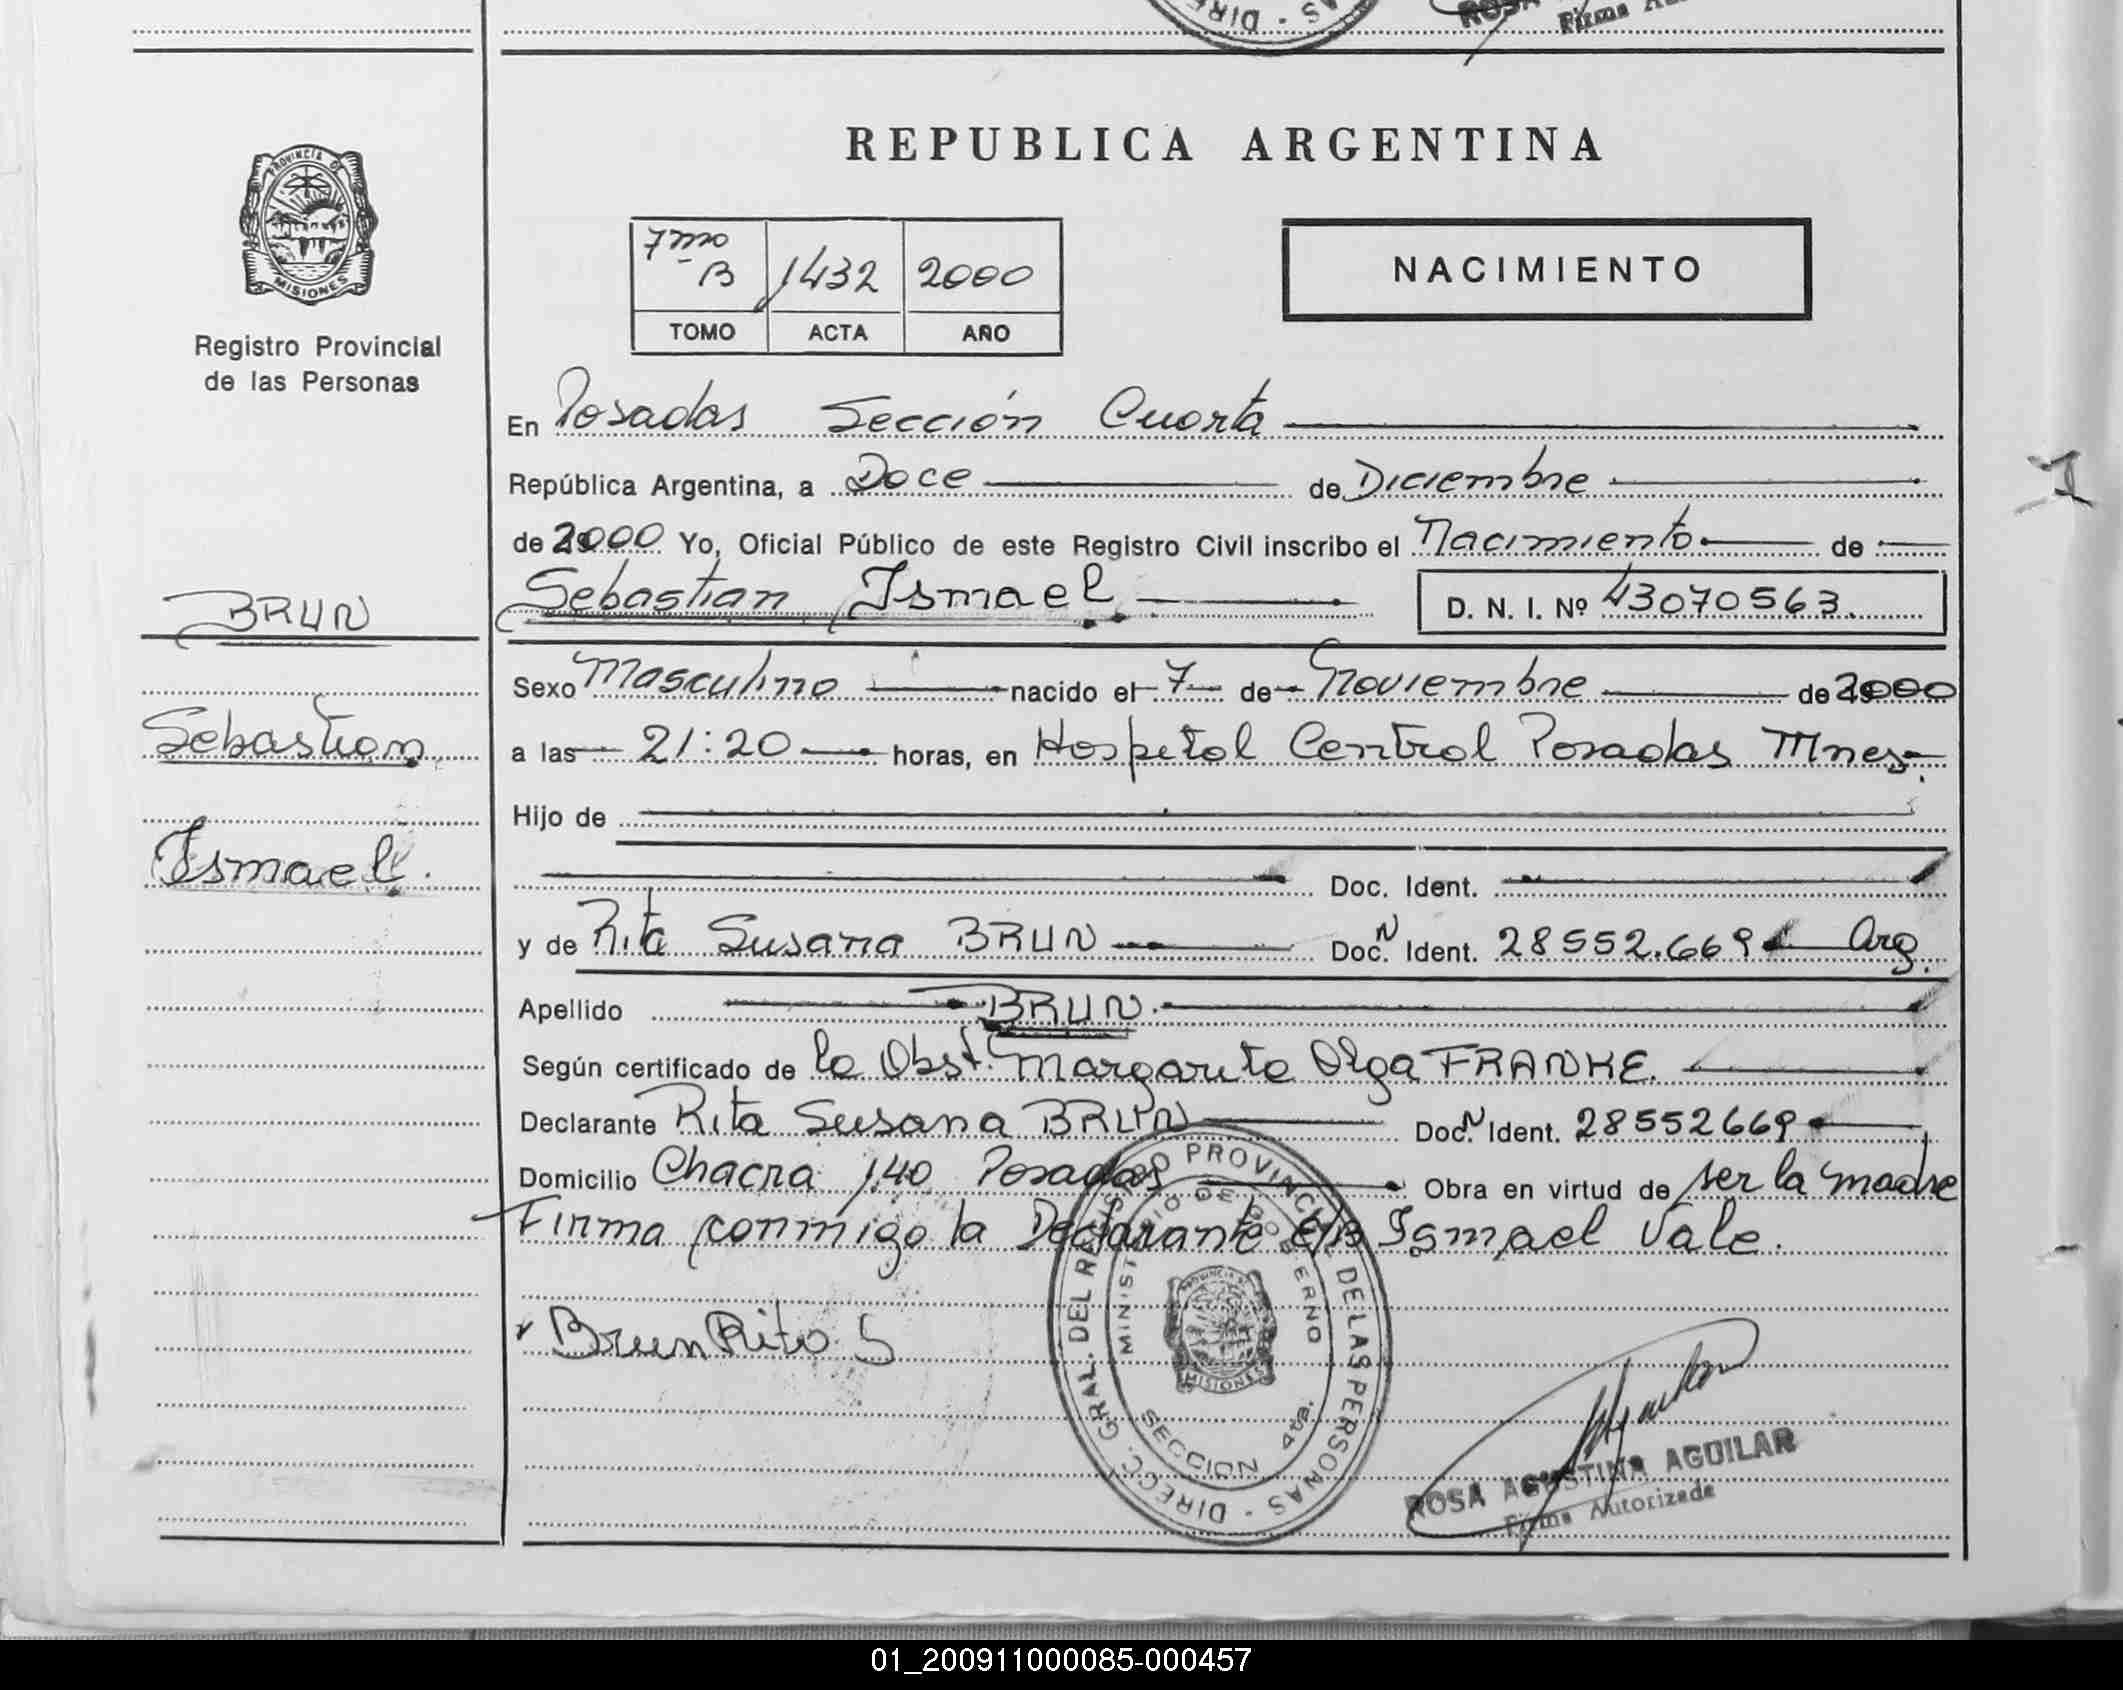 REPUBLICA ARGENTINA
PROVINCIA DE
MISIONES
Registro Provincial
de las Personas
7mo B 1432 2000
TOMO ACTA AÑO
NACIMIENTO
En Posadas Sección Cuarta
República Argentina, a Doce de Diciembre
de 2000 Yo, Oficial Público de este Registro Civil inscribo el Nacimiento de
Sebastian Ismael D. N. I. Nº 43070563.
BRUN
Sebastian
Ismael.
Sexo Masculino nacido el 7 de Noviembre de 2000
a las 21:20 horas, en Hospital Central Posadas Mnes.
Hijo de
Doc. Ident.
y de Rita Susana BRUN Doc. N Ident. 28552.669 Arg.
Apellido BRUN
Según certificado de la Obst. Margarita Olga FRANKE.
Declarante Rita Susana BRUN Doc. N Ident. 28552669
Domicilio Chacra 140 Posadas Obra en virtud de ser la madre
Firma conmigo la Declarante Ismael Vale.
Brun Rita S
DIRECC. GRAL. DEL REGISTRO PROVINCIAL DE LAS PERSONAS
MINISTERIO DE GOBIERNO
PROVINCIA DE
MISIONES
SECCION 4ta.
ROSA AGUSTINA AGUILAR
Firma Autorizada
01_200911000085-000457